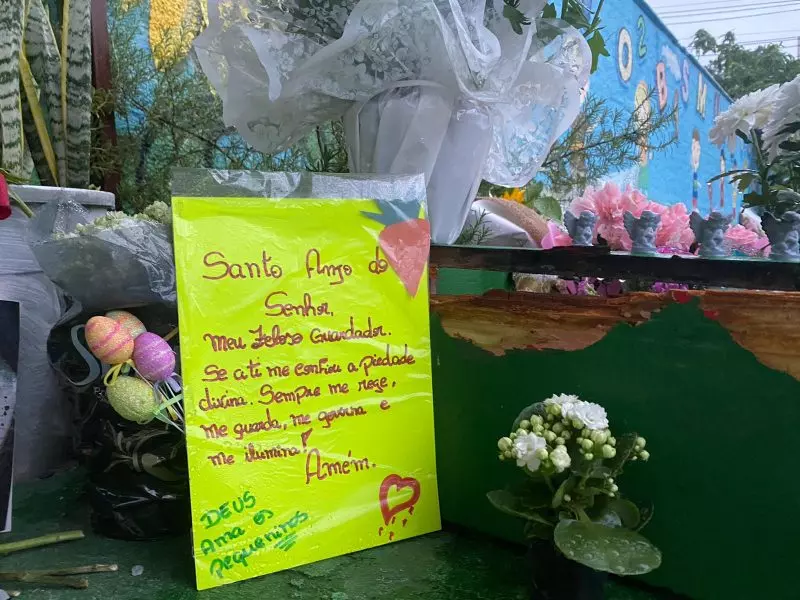 Santo Anjo do
Senhor,
Meu Zeloso Guardador.
Se a ti me confiou a piedade
divina. Sempre me rege,
me guarda, me governa e
me ilumina!
Amém.
DEUS
Ama os
Pequeninos